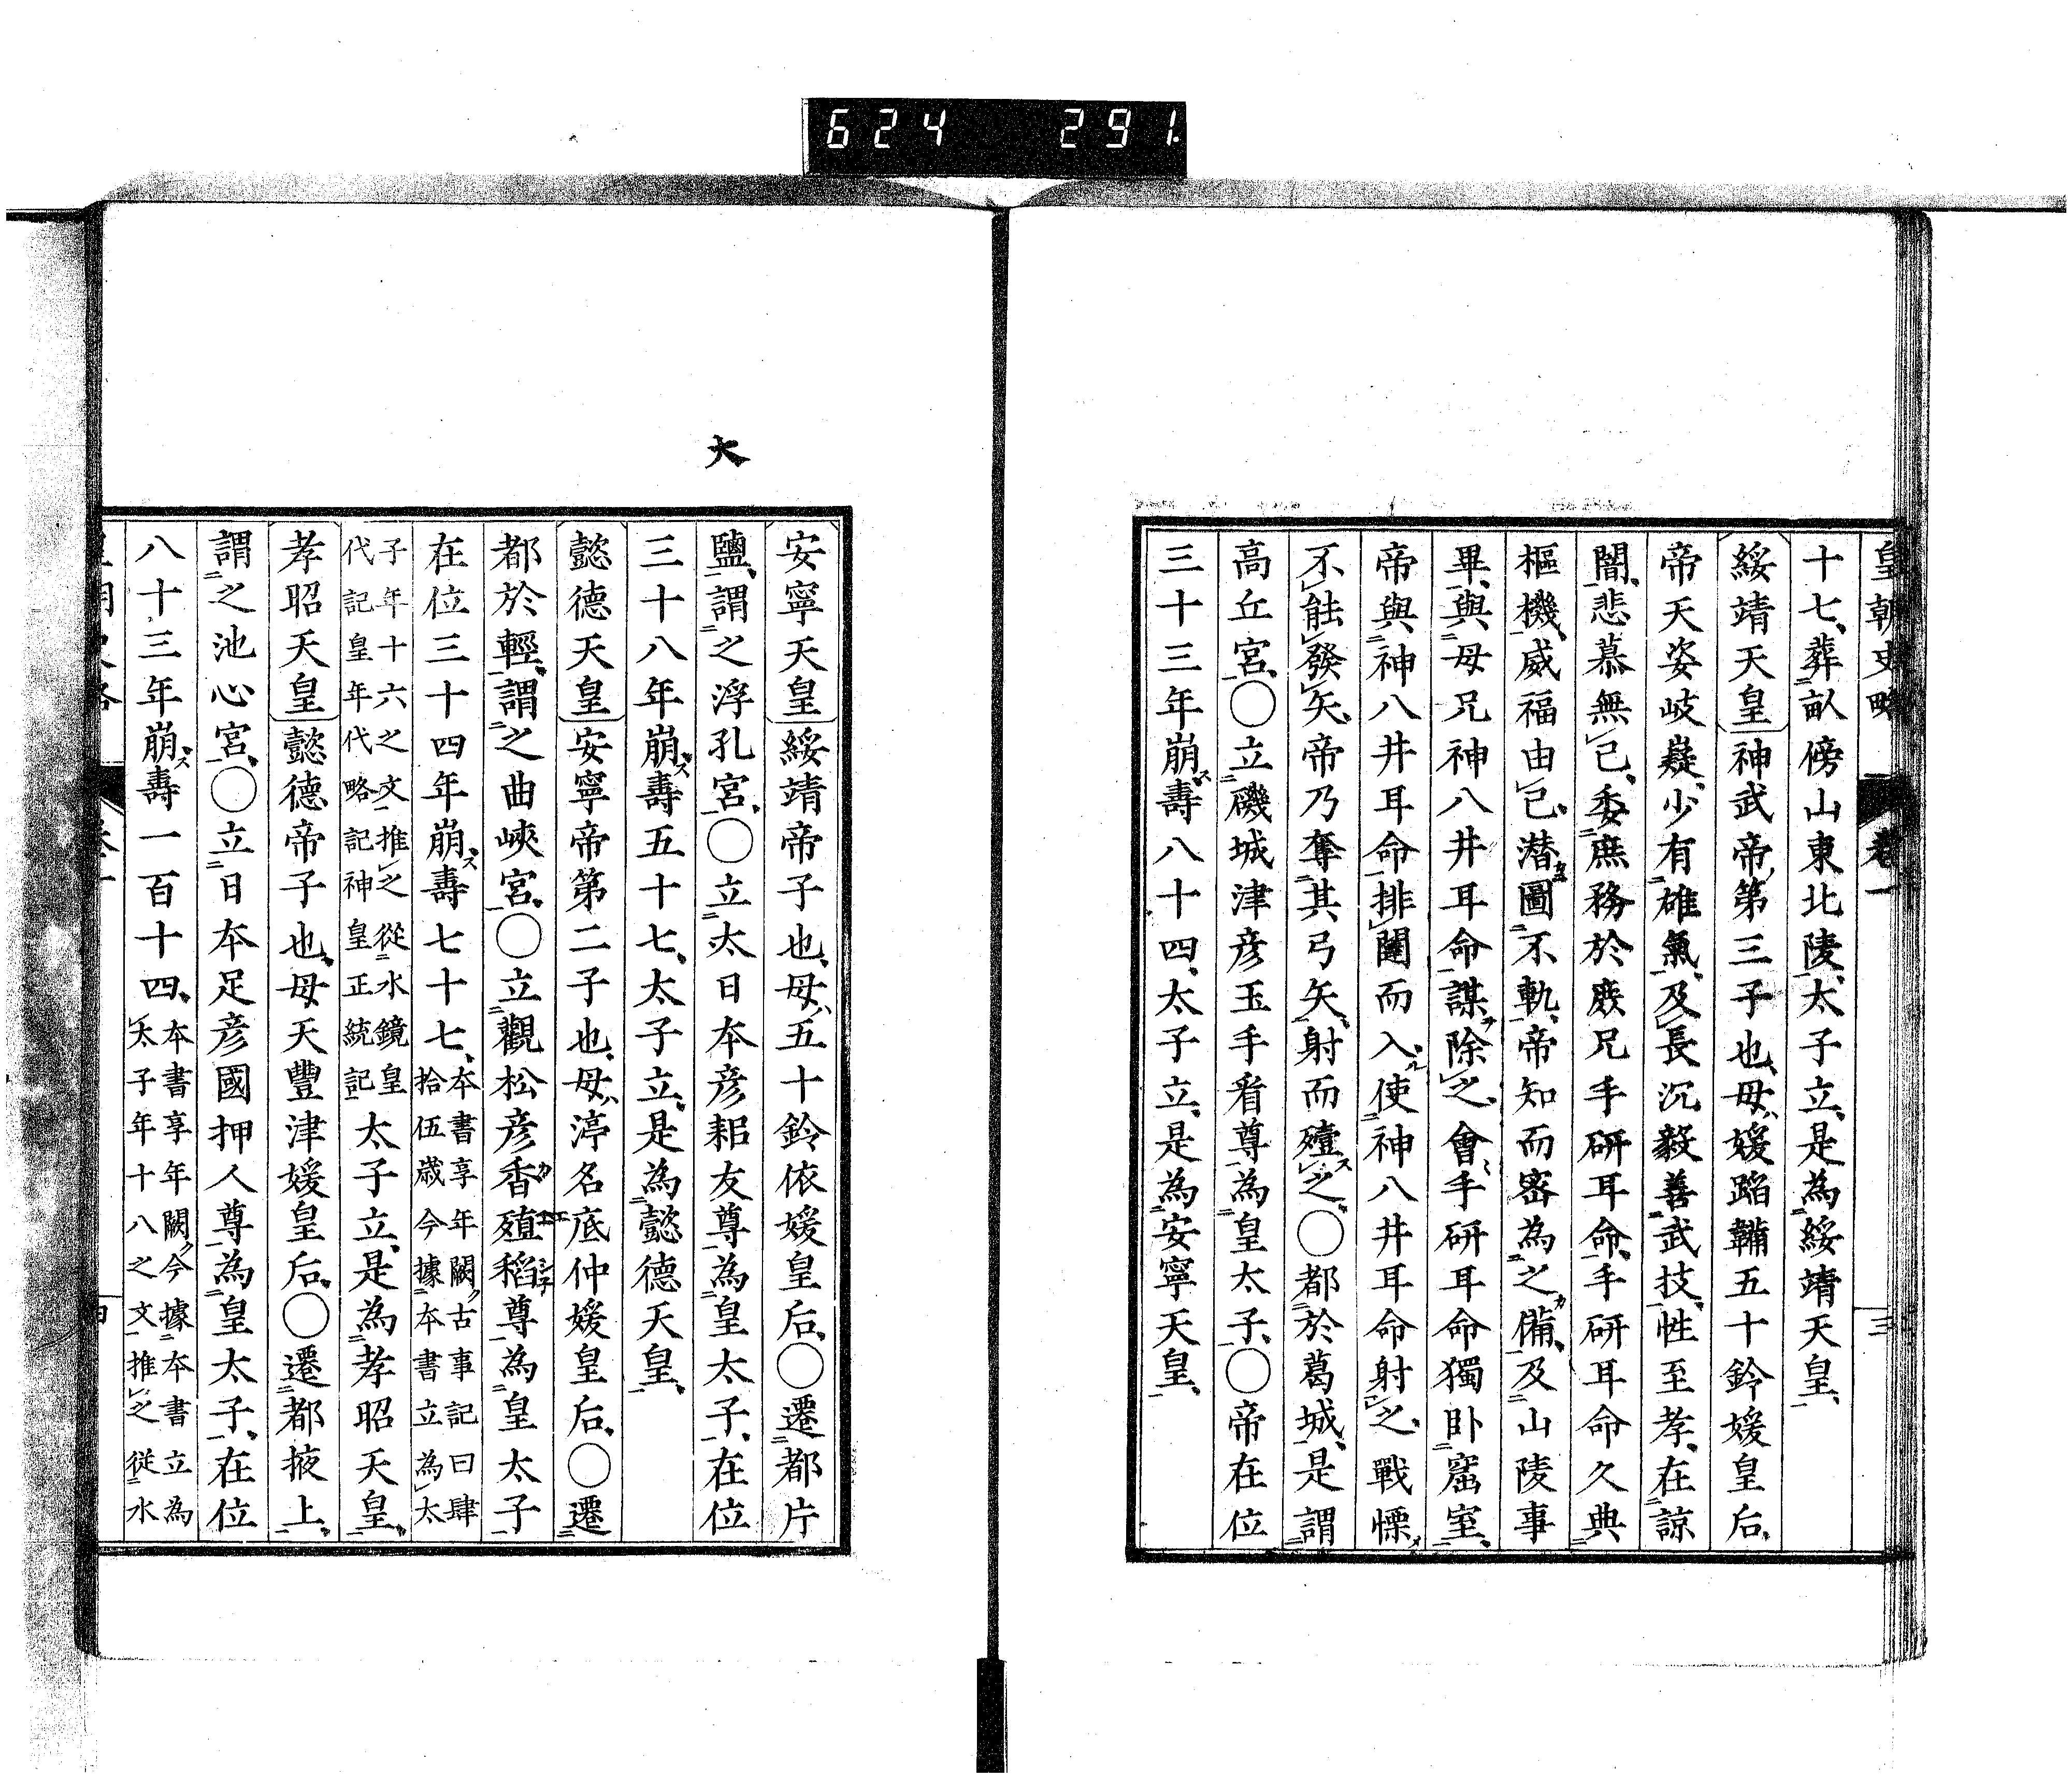 624 291.
皇朝史略 卷一 三
十七、葬畝傍山東北陵、太子立、是為綏靖天皇、
綏靖天皇 神武帝第三子也、母媛蹈韛五十鈴媛皇后、
帝天姿岐嶷、少有雄氣、及長沉毅善武技、性至孝、在諒
闇、悲慕無已、委庶務於庶兄手研耳命、手研耳命久典
樞機、威福由己、潜圖不軌、帝知而密為之備、及山陵事
畢、與母兄神八井耳命謀除之、會手研耳命獨臥窟室、
帝與神八井耳命排闥而入、使神八井耳命射之、戰慄
不能發矢、帝乃奪其弓矢、射而殪之、○都於葛城、是謂
高丘宮、○立磯城津彦玉手看尊為皇太子、○帝在位
三十三年崩、壽八十四、太子立、是為安寧天皇、
大
安寧天皇 綏靖帝子也、母五十鈴依媛皇后、○遷都片
鹽、謂之浮孔宮、○立大日本彦耜友尊為皇太子、在位
三十八年崩、壽五十七、太子立、是為懿德天皇、
懿德天皇 安寧帝第二子也、母渟名底仲媛皇后、○遷
都於輕、謂之曲峽宮、○立觀松彦香殖稻尊為皇太子
在位三十四年崩、壽七十七、本書享年闕、古事記曰肆拾伍歳今據本書立為太
子年十六之文推之從水鏡皇代記皇年代略記神皇正統記 太子立、是為孝昭天皇、
孝昭天皇 懿德帝子也、母天豐津媛皇后、○遷都掖上、
謂之池心宮、○立日本足彦國押人尊為皇太子、在位
八十三年崩、壽一百十四、本書享年闕、今據本書立為太子年十八之文推之從水